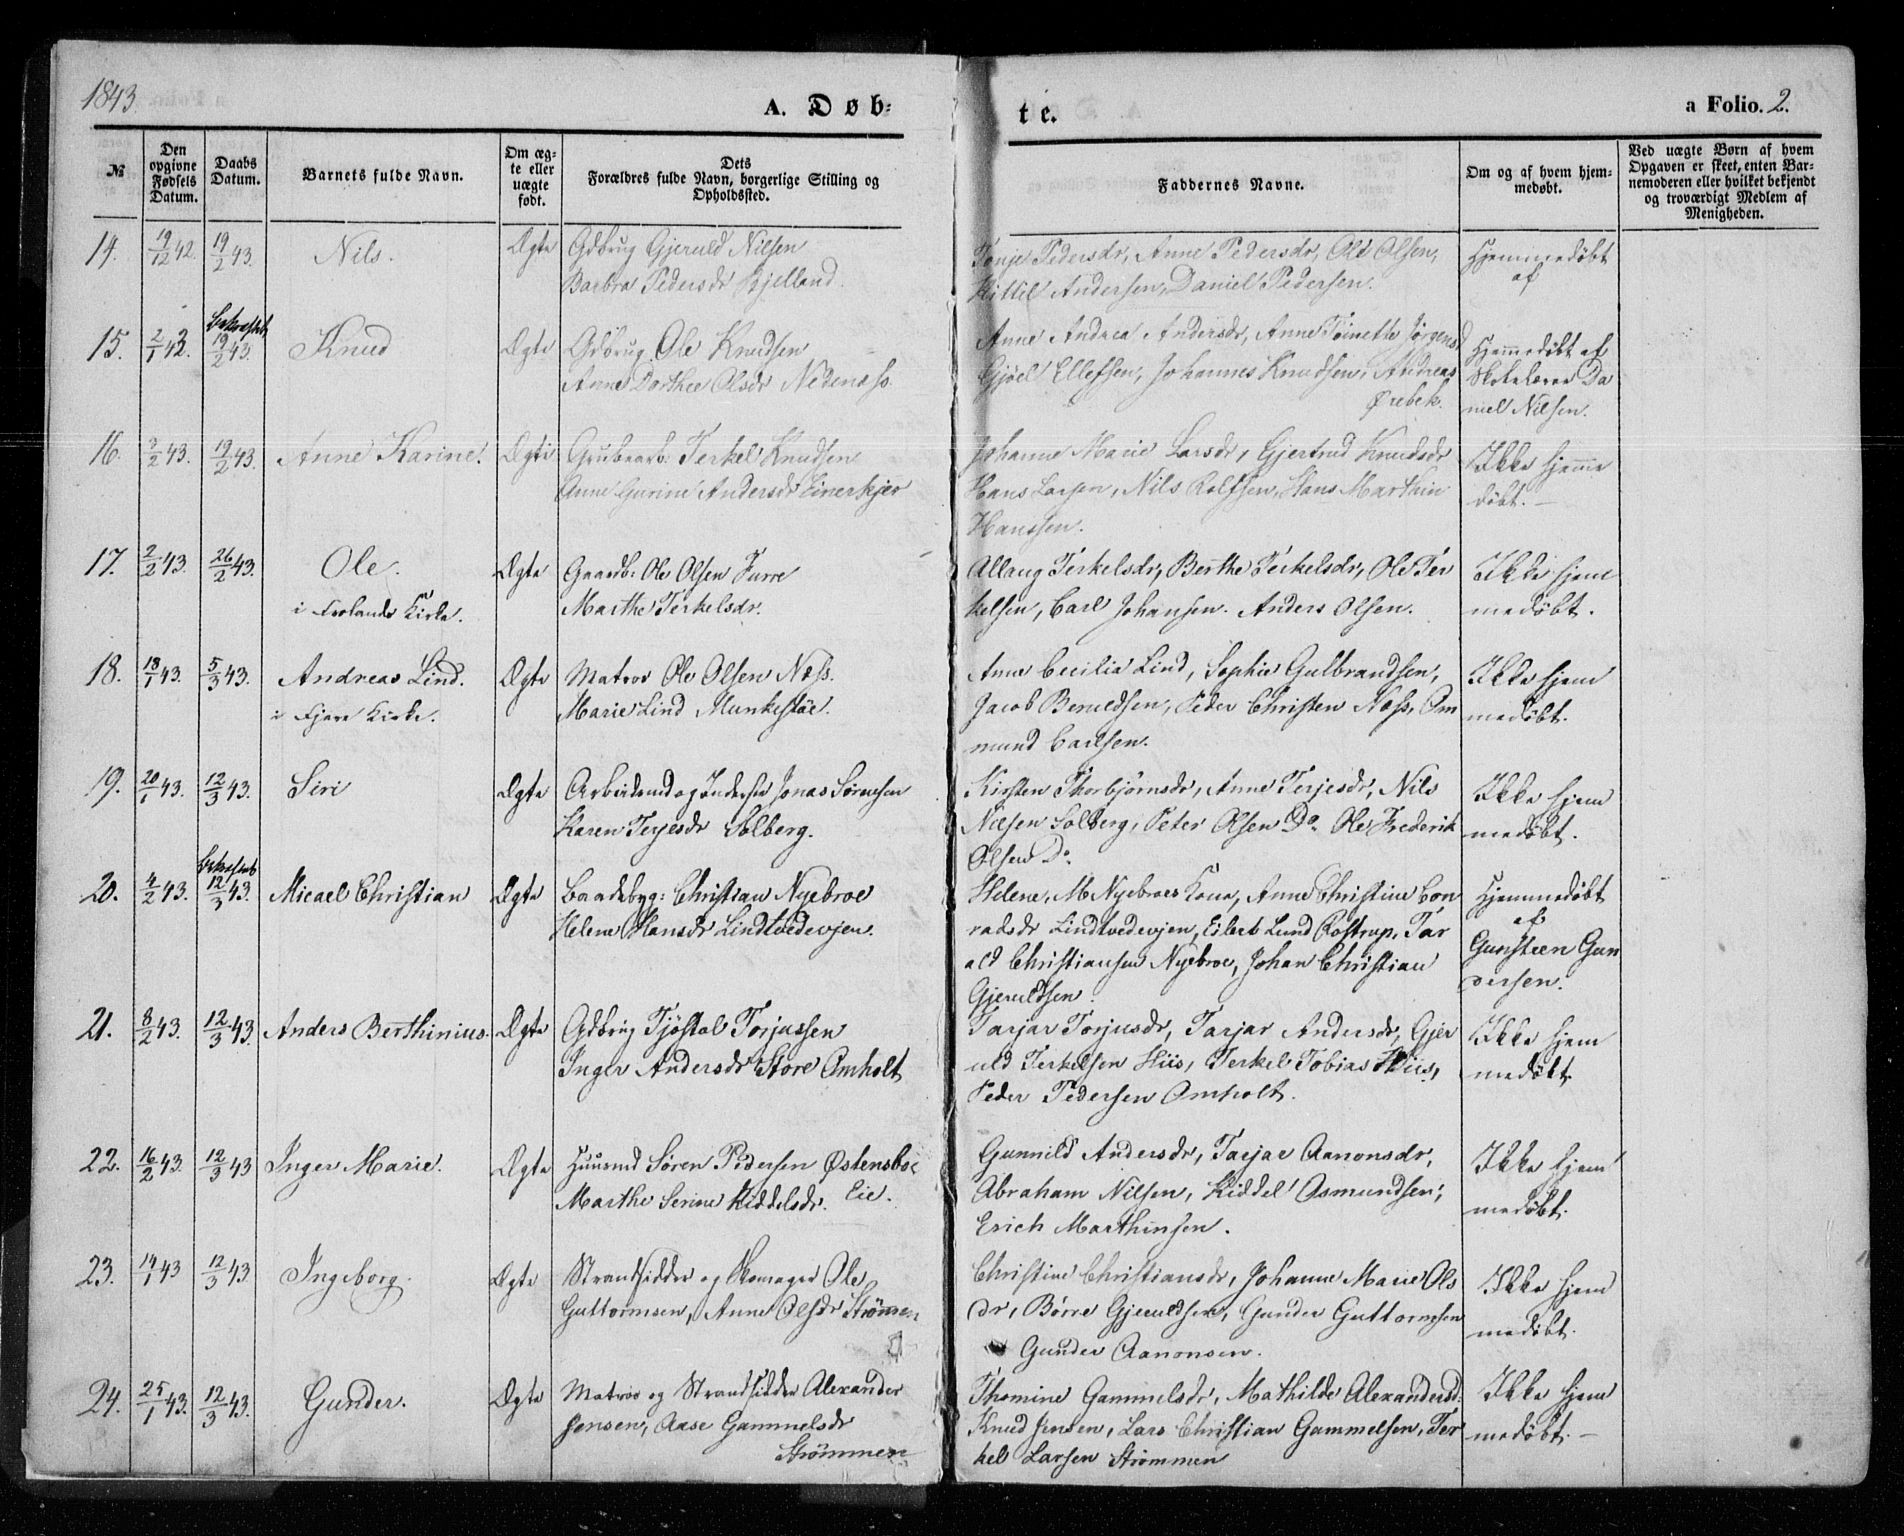 1843.
A. Døb-
te.
a Folio. 2.
№
Den opgivne Fødsels Datum.
Daabs Datum.
Barnets fulde Navn.
Om ægte eller uægte født.
Dets Forældres fulde Navn, borgerlige Stilling og Opholdssted.
Faddernes Navne.
Om og af hvem hjemmedøbt.
Ved uægte Børn af hvem Opgaven er skeet, enten Barnemoderen eller hvilket bekjendt og troværdigt Medlem af Menigheden.
14. 19/12 42. 19/2 43. Nils. Ægte
Gdbrug Gjeruld Nilsen
Barbra Pedersdr Kjelland.
Tonje Pedersdr, Anne Pedersdr, Ole Olsen,
Kittil Andersen, Daniel Pedersen.
Hjemmedøbt
af
15. 2/1 43. bekræftet 19/2 43. Knud Ægte
Gdbrug. Ole Knudsen
Anne Dorthea Olsdr Nedenæs.
Anne Andrea Andersdr, Anne Tonette Jørgensd
Gjøel Ellefsen, Johannes Knudsen, Andreas
Ørebek.
Hjemedøbt af
Skolelærer Da
niel Nilsen.
16. /2 43. 19/2 43. Anne Karine. Ægte
Grubearb: Terkel Knudsen
Anne Gurine Andersdr Einerkjer
Johanne Marie Larsdr, Gjertrud Knudsdr
Hans Larsen, Nils Rolfsen, Hans Marthin
Hanssen.
Ikke hjemme
døbt. —
17. 2/2 43. 26/2 43. Ole. Ægte
i Frolands Kirke.
Gaardb: Ole Olsen Furre
Marthe Terkelsdr.
Allaug Terkelsdr, Berthe Terkelsdr, Ole Ter
kelsen, Carl Johansen. Anders Olsen.
Ikke hjem
medøbt.
18. 18/1 43. 5/3 43. Andreas Lind. Ægte
i Fjære Kirke.
Matros Ole Olsen Næss.
Marie Lind Munkestøe.
Anne Cecilia Lind, Sophie Gulbrandsen,
Jacob Beruldsen, Peder Christen Næss, Om
mund Carlsen.
Ikke hjem
medøbt.
19. 20/1 43. 12/3 43. Siri Ægte
Arbeidsmd og Inderste Jonas Sørensen
Karen Terjesdr Solberg.
Kirsten Thorbjørnsdr, Anne Terjesdr, Nils
Nilsen Solberg, Peter Olsen Do. Ole Frederik
Olsen Do.
Ikke hjem
medøbt.
20. 4/2 43. bekræftet 12/3 43. Micael Christian Ægte
Baadebyg: Christian Nyebroe
Helene Hansdr Lindtvedevjen.
Helene, M Nyebroes Kone, Anne Christine Con
radsdr Lindtvedevjen, Eilert Lund Rostrup, Tar
ald Christiansen Nyebroe, Johan Christian
Gjeruldsen.
Hjemmedøbt
af
Gunsteen Gun
dersen.
21. 8/2 43. 12/3 43. Anders Berthinius. Ægte
Gdbrug Tjøstol Torjussen
Inger Andersdr Store Omholt
Tarjar Torjusdr, Tarjar Andersdr, Gjer
uld Terkelsen Hiis, Terkel Tobias Hiis,
Peder Pedersen Omholt.
Ikke hjem
medøbt.
22. 16/2 43. 12/3 43 Inger Marie. Ægte
Huusmd Søren Pedersen Østensboe
Marthe Serine Kiddelsdr. Eie.
Gunnild Andersdr, Tarjar Aanonsdr,
Abraham Nilsen, Kiddel Osmundsen,
Erich Marthinsen.
Ikke hjem
medøbt.
23. 14/1 43 12/3 43. Ingeborg. Ægte
Strandsidder og Skomager Ole
Guttormsen, Anne Olsdr Strømmen
Christine Christiansdr, Johanne Marie Ols
dr, Børre Gjeruldsen, Gunder Guttormsen
Gunder Aanonsen.
Ikke hjem
medøbt.
24. 25/1 43. 12/3 43. Gunder. Ægte
Matros og Strandsidder Alexander
Jensen, Aase Gammelsdr
Strømmen
Thomine Gammelsdr, Mathilde Alexandersd.
Knud Jensen, Lars Christian Gammelsen, Ter
kel Larsen Strømmen
Ikke hjem
medøbt. —